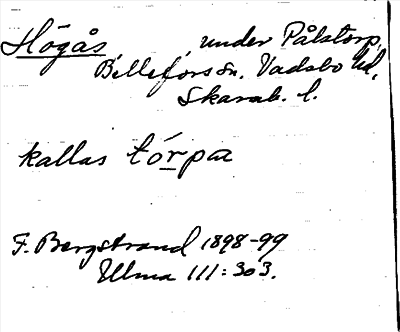 Högås, under Pålstorp,
Bällefors sn. Vadsbo hd,
Skarab. l.
kallas tórpa
F. Bergstrand 1898-99
Ulma 111:303.